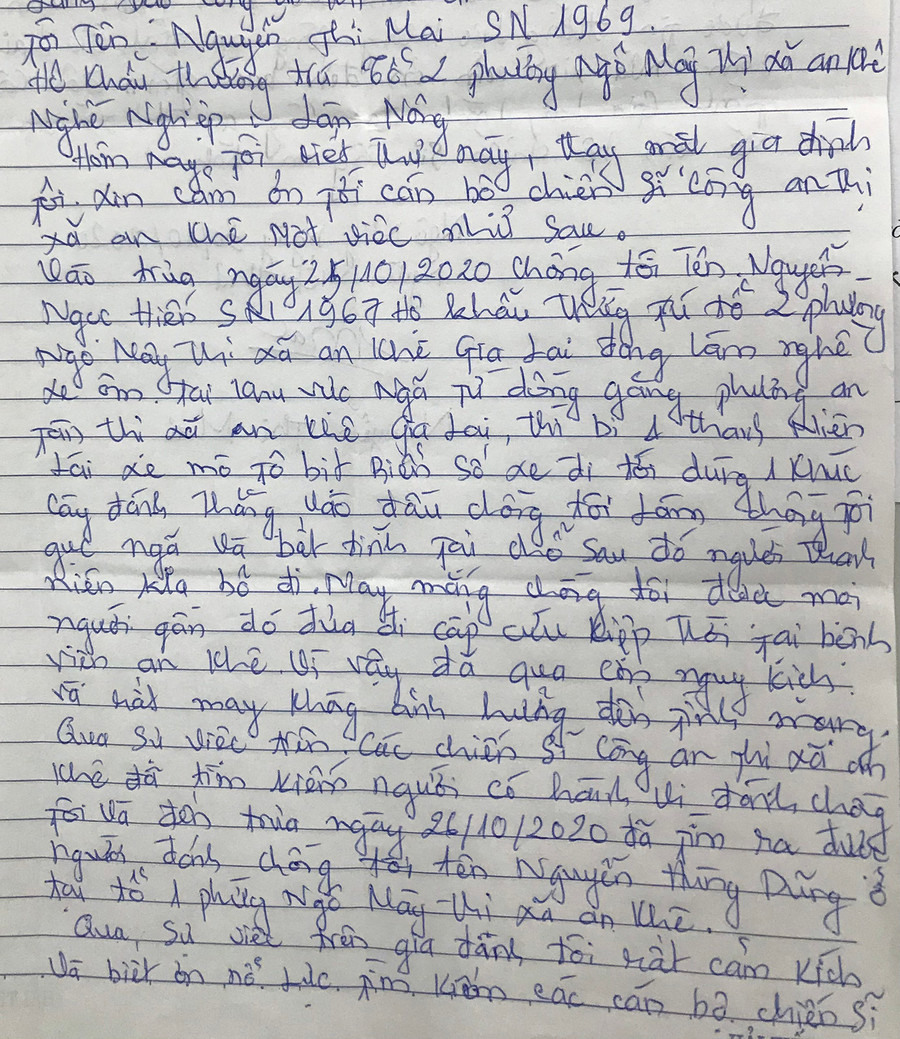 Tôi Tên. Nguyễn Thị Mai SN 1969.
Hộ Khẩu thường trú Tổ 2 phường Ngô Mây Thị xã an Khê
Nghề Nghiệp: Làm Nông
Hôm nay, Tôi viết thư này, thay mặt gia đình
Tôi. Xin cảm ơn Tới cán bộ chiến sĩ Công an Thị
xã an Khê Một việc như sau.
Vào trưa ngày 25/10/2020 Chồng tôi Tên. Nguyễn
Ngọc Hiến SN 1967 Hộ khẩu Thường Trú tổ 2 phường
Ngô Mây Thị xã an Khê Gia Lai đang làm nghề
xe ôm. tại khu vực Ngã Tư đồng găng phường an
Tân thị xã an Khê Gia Lai, thì bị 1 thanh Niên
Lái xe mô Tô bịt Biển Số xe đi tới dùng 1 Khúc
Cây đánh Thẳng Vào đầu chồng tôi Làm chồng Tôi
gục ngã Và bất tỉnh Tại chỗ Sau đó người Thanh
Niên Kia bỏ đi. May mắng chồng tôi được mọi
người gần đó đưa đi cấp cứu Kiệp Thời Tại bệnh
viện an Khê Vì vậy đã qua cơn nguy kịch.
và rất may Không ảnh hưởng đến Tính mạng.
Qua Sự việc trên. Các chiến Sĩ Công an Thị xã an
Khê đã tìm kiếm người có hành vi đánh chồng
Tôi Và đến trưa ngày 26/10/2020 đã Tìm ra được
người đánh chồng tôi tên Nguyễn Hùng Dũng ở
tại tổ 1 phường Ngô Mây Thị xã an Khê.
Qua, Sự việc trên gia đình tôi rất cảm Kích
Và biết ơn nổ Lực Tìm Kiếm các cán bộ chiến Sĩ